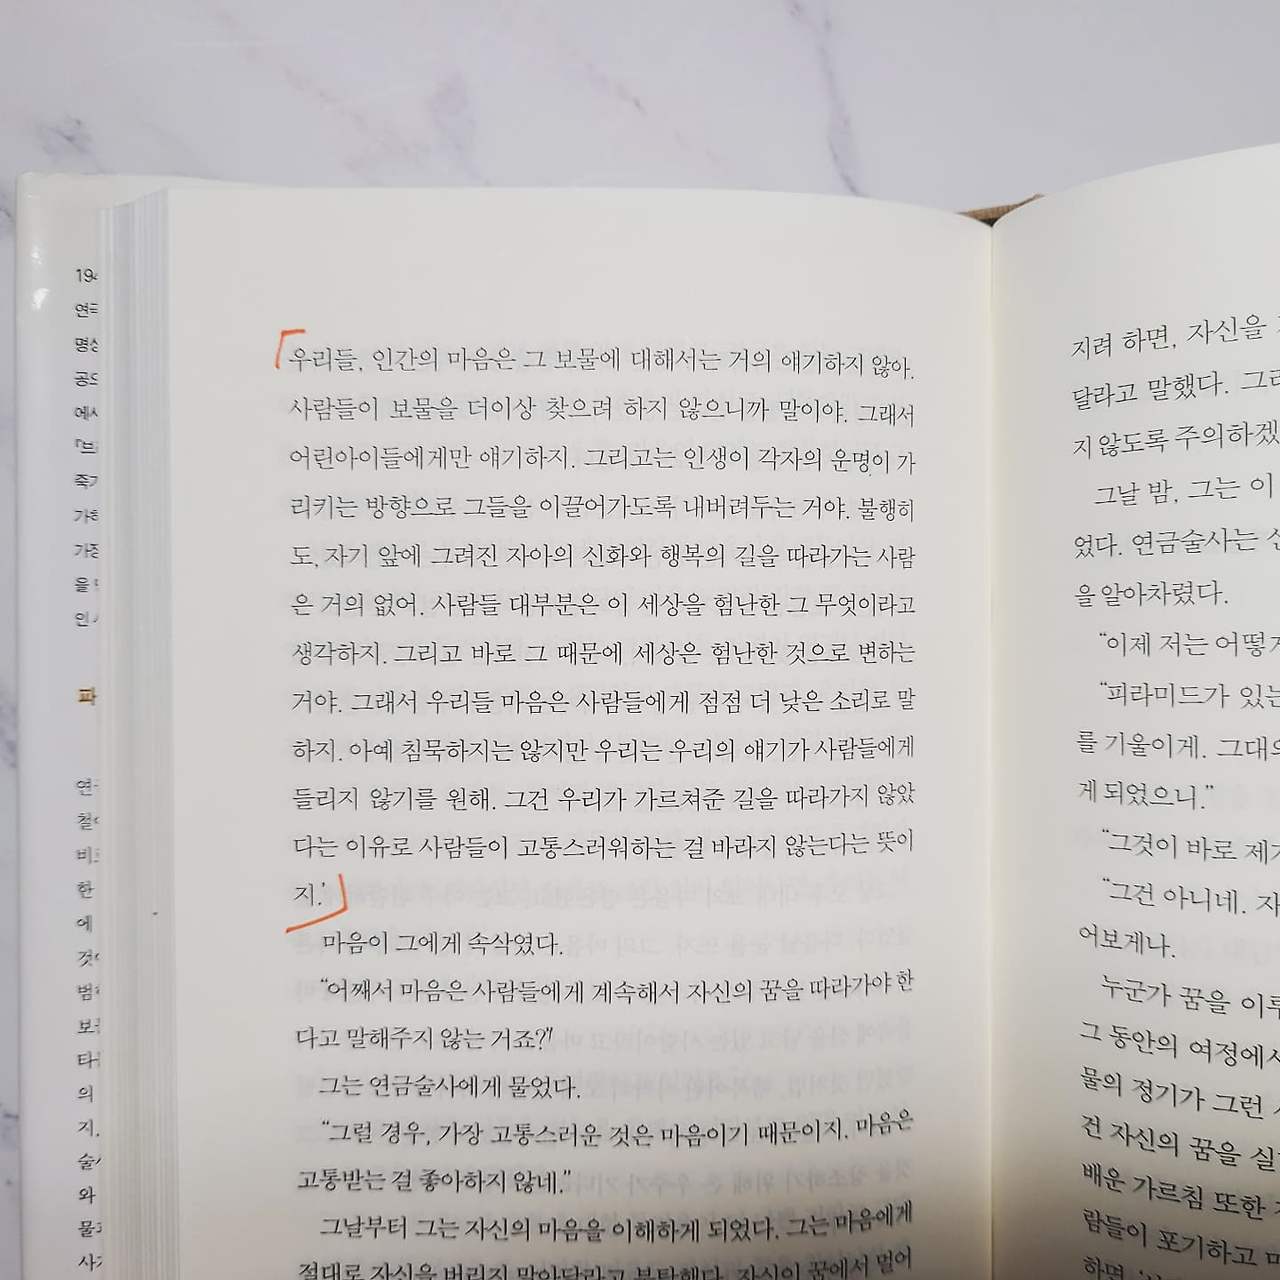 194
연극
명상
공으
에서
『브
죽기
가히
가장
을
인
파
연
철
비
한
에
것
범
보
타
의
지.
술
와
물
사
우리들, 인간의 마음은 그 보물에 대해서는 거의 얘기하지 않아.
사람들이 보물을 더이상 찾으려 하지 않으니까 말이야. 그래서
어린아이들에게만 얘기하지. 그리고는 인생이 각자의 운명이 가
리키는 방향으로 그들을 이끌어가도록 내버려두는 거야. 불행히
도, 자기 앞에 그려진 자아의 신화와 행복의 길을 따라가는 사람
은 거의 없어. 사람들 대부분은 이 세상을 험난한 그 무엇이라고
생각하지. 그리고 바로 그 때문에 세상은 험난한 것으로 변하는
거야. 그래서 우리들 마음은 사람들에게 점점 더 낮은 소리로 말
하지. 아예 침묵하지는 않지만 우리는 우리의 얘기가 사람들에게
들리지 않기를 원해. 그건 우리가 가르쳐준 길을 따라가지 않았
다는 이유로 사람들이 고통스러워하는 걸 바라지 않는다는 뜻이
지.'
마음이 그에게 속삭였다.
“어째서 마음은 사람들에게 계속해서 자신의 꿈을 따라가야 한
다고 말해주지 않는 거죠?”
그는 연금술사에게 물었다.
“그럴 경우, 가장 고통스러운 것은 마음이기 때문이지. 마음은
고통받는 걸 좋아하지 않네.”
그날부터 그는 자신의 마음을 이해하게 되었다. 그는 마음에게
절대로 자신을 버리지 말아달라고 부탁했다. 자신이 꿈에서 멀어
지려 하면, 자신을
달라고 말했다. 그리
지 않도록 주의하겠
그날 밤, 그는 이
었다. 연금술사는 신
을 알아차렸다.
“이제 저는 어떻게
“피라미드가 있는
를 기울이게. 그대의
게 되었으니.”
“그것이 바로 제가
“그건 아니네. 자
어보게나.
누군가 꿈을 이루
그 동안의 여정에서
물의 정기가 그런
건 자신의 꿈을 실
배운 가르침 또한
람들이 포기하고
하면,